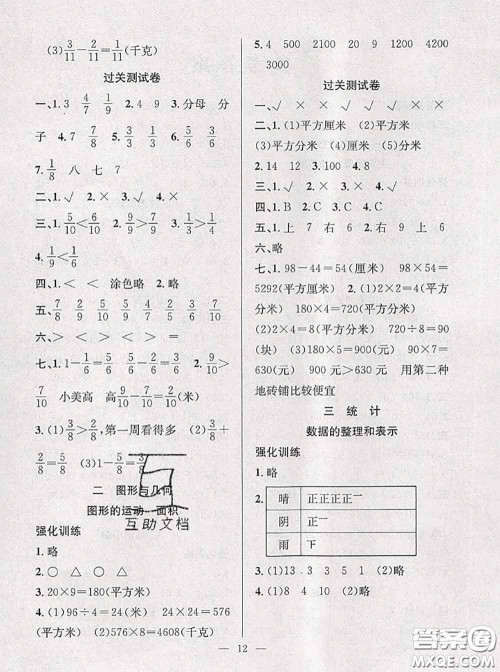 (3)3/11－2/11＝1/11(千克)
过关测试卷
一、1.3 4/7 4/9 2.4 9 3.分母 分
子 4.7 7/8 3/4 5.3 3/8 6.1/9
7.1/8 八 七 7
二、1.√ 2.× 3.× 4.√ 5.×
三、1.5/10＜6/10 2.5/9＞4/9 3.6/7＞5/7
4.1/9＜1/8
四、1.＜ ＜ 涂色略 2.略
五、7/8 5/9 3/10 2/7 2/8 5/6 4/9 3/10
六、＞ ＜ ＞ ＜ ＝ ＞
七、1.1－1/6＝5/6 5/6＞1/6 2.9/10＞
7/10 小美高 高9/10－7/10＝2/10(米)
3.(1)3/8＞2/8,第一周看得多 (2)3/8＋
2/8＝5/8 (3)1－5/8＝3/8
二 图形与几何
图形的运动 面积
强化训练
1.略
2.○ △ ○ △
3.20×9＝180(平方米)
4.(1)96÷4＝24(米) 24×24＝576
(平方米) (2)576×8＝4608(千克)
5.4 500 2100 20 9 1200 4200
3000
过关测试卷
一、√ × √ × √ ×
二、1.(1)平方厘米 (2)平方米
(3)平方分米 (4)平方厘米
2.14 12 3.100 4.8
三、1.√ 2.× 3.× 4.√
四、1.B 2.C 3.C 4.C
五、1.上 7 右 6 2.右 9 上 6
六、略
七、1.98－44＝54(厘米) 98×54＝
5292(平方厘米) 2.(1)2×2＝4(平
方分米) 180×4＝720(平方分米)
(2)2×4＝8(平方分米) 720÷8＝90
(块) (3)180×5＝900(元) 90×7＝
630(元) 900元＞630元 用第二种
地砖铺比较便宜
三 统计
数据的整理和表示
强化训练
1.略
2.
晴 正正正正一
阴 正一
雨 下
3.(1)13 3 5 1 (2)略
4.(1)8 9 4 (2)略
互助文档
— 12 —
答案圈
MXQE.COM